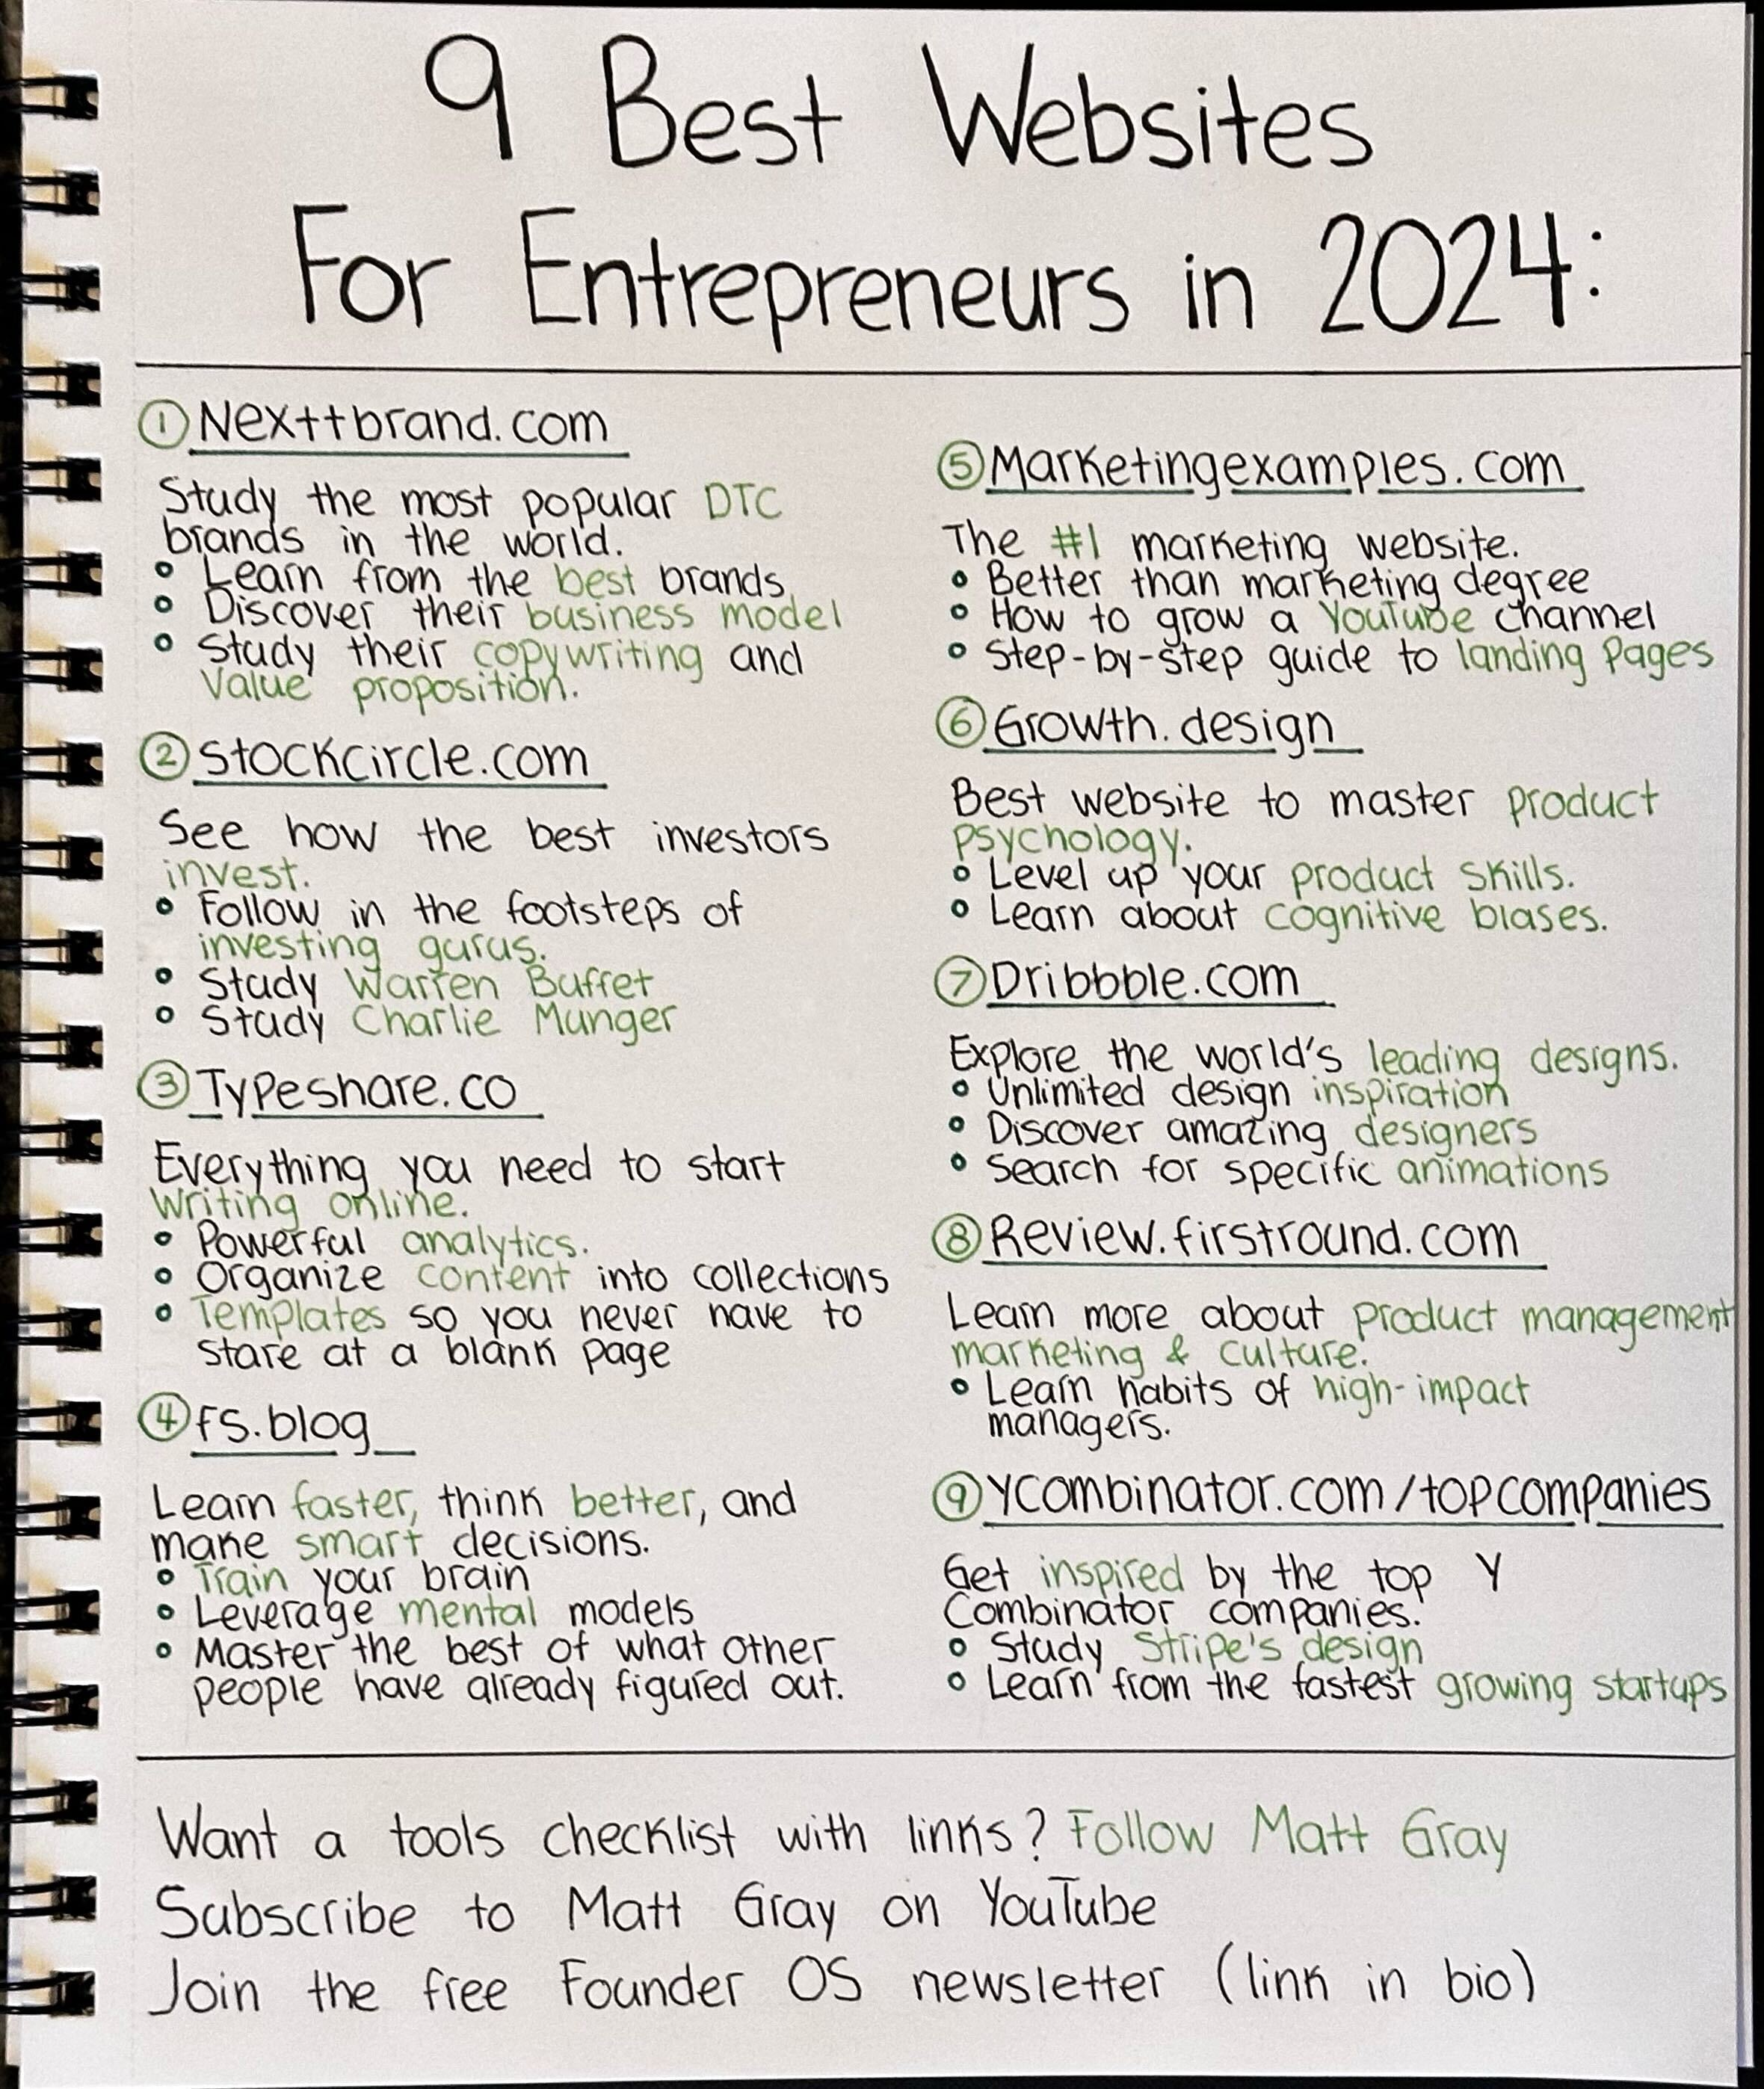 9 Best Websites
For Entrepreneurs in 2024:
① Nexttbrand.com
Study the most popular DTC
brands in the world.
• Learn from the best brands
• Discover their business model
• Study their copywriting and
value proposition.
② stockcircle.com
See how the best investors
invest.
• Follow in the footsteps of
investing gurus.
• Study Warren Buffet
• Study Charlie Munger
③ Typeshare.co
Everything you need to start
writing online.
• Powerful analytics.
• Organize content into collections
• Templates so you never have to
stare at a blank page
④ fs.blog
Learn faster, think better, and
make smart decisions.
• Train your brain
• Leverage mental models
• Master the best of what other
people have already figured out.
⑤ Marketingexamples.com
The #1 marketing website.
• Better than marketing degree
• How to grow a YouTube channel
• Step-by-step guide to landing Pages
⑥ Growth.design
Best website to master product
psychology.
• Level up your product skills.
• Learn about cognitive biases.
⑦ Dribbble.com
Explore the world's leading designs.
• Unlimited design inspiration
• Discover amazing designers
• Search for specific animations
⑧ Review.firstround.com
Learn more about product management
marketing & culture.
• Learn habits of high-impact
managers.
⑨ ycombinator.com/topcompanies
Get inspired by the top Y
Combinator companies.
• Study Stripe's design
• Learn from the fastest growing startups
Want a tools checklist with links? Follow Matt Gray
Subscribe to Matt Gray on YouTube
Join the free Founder OS newsletter (link in bio)